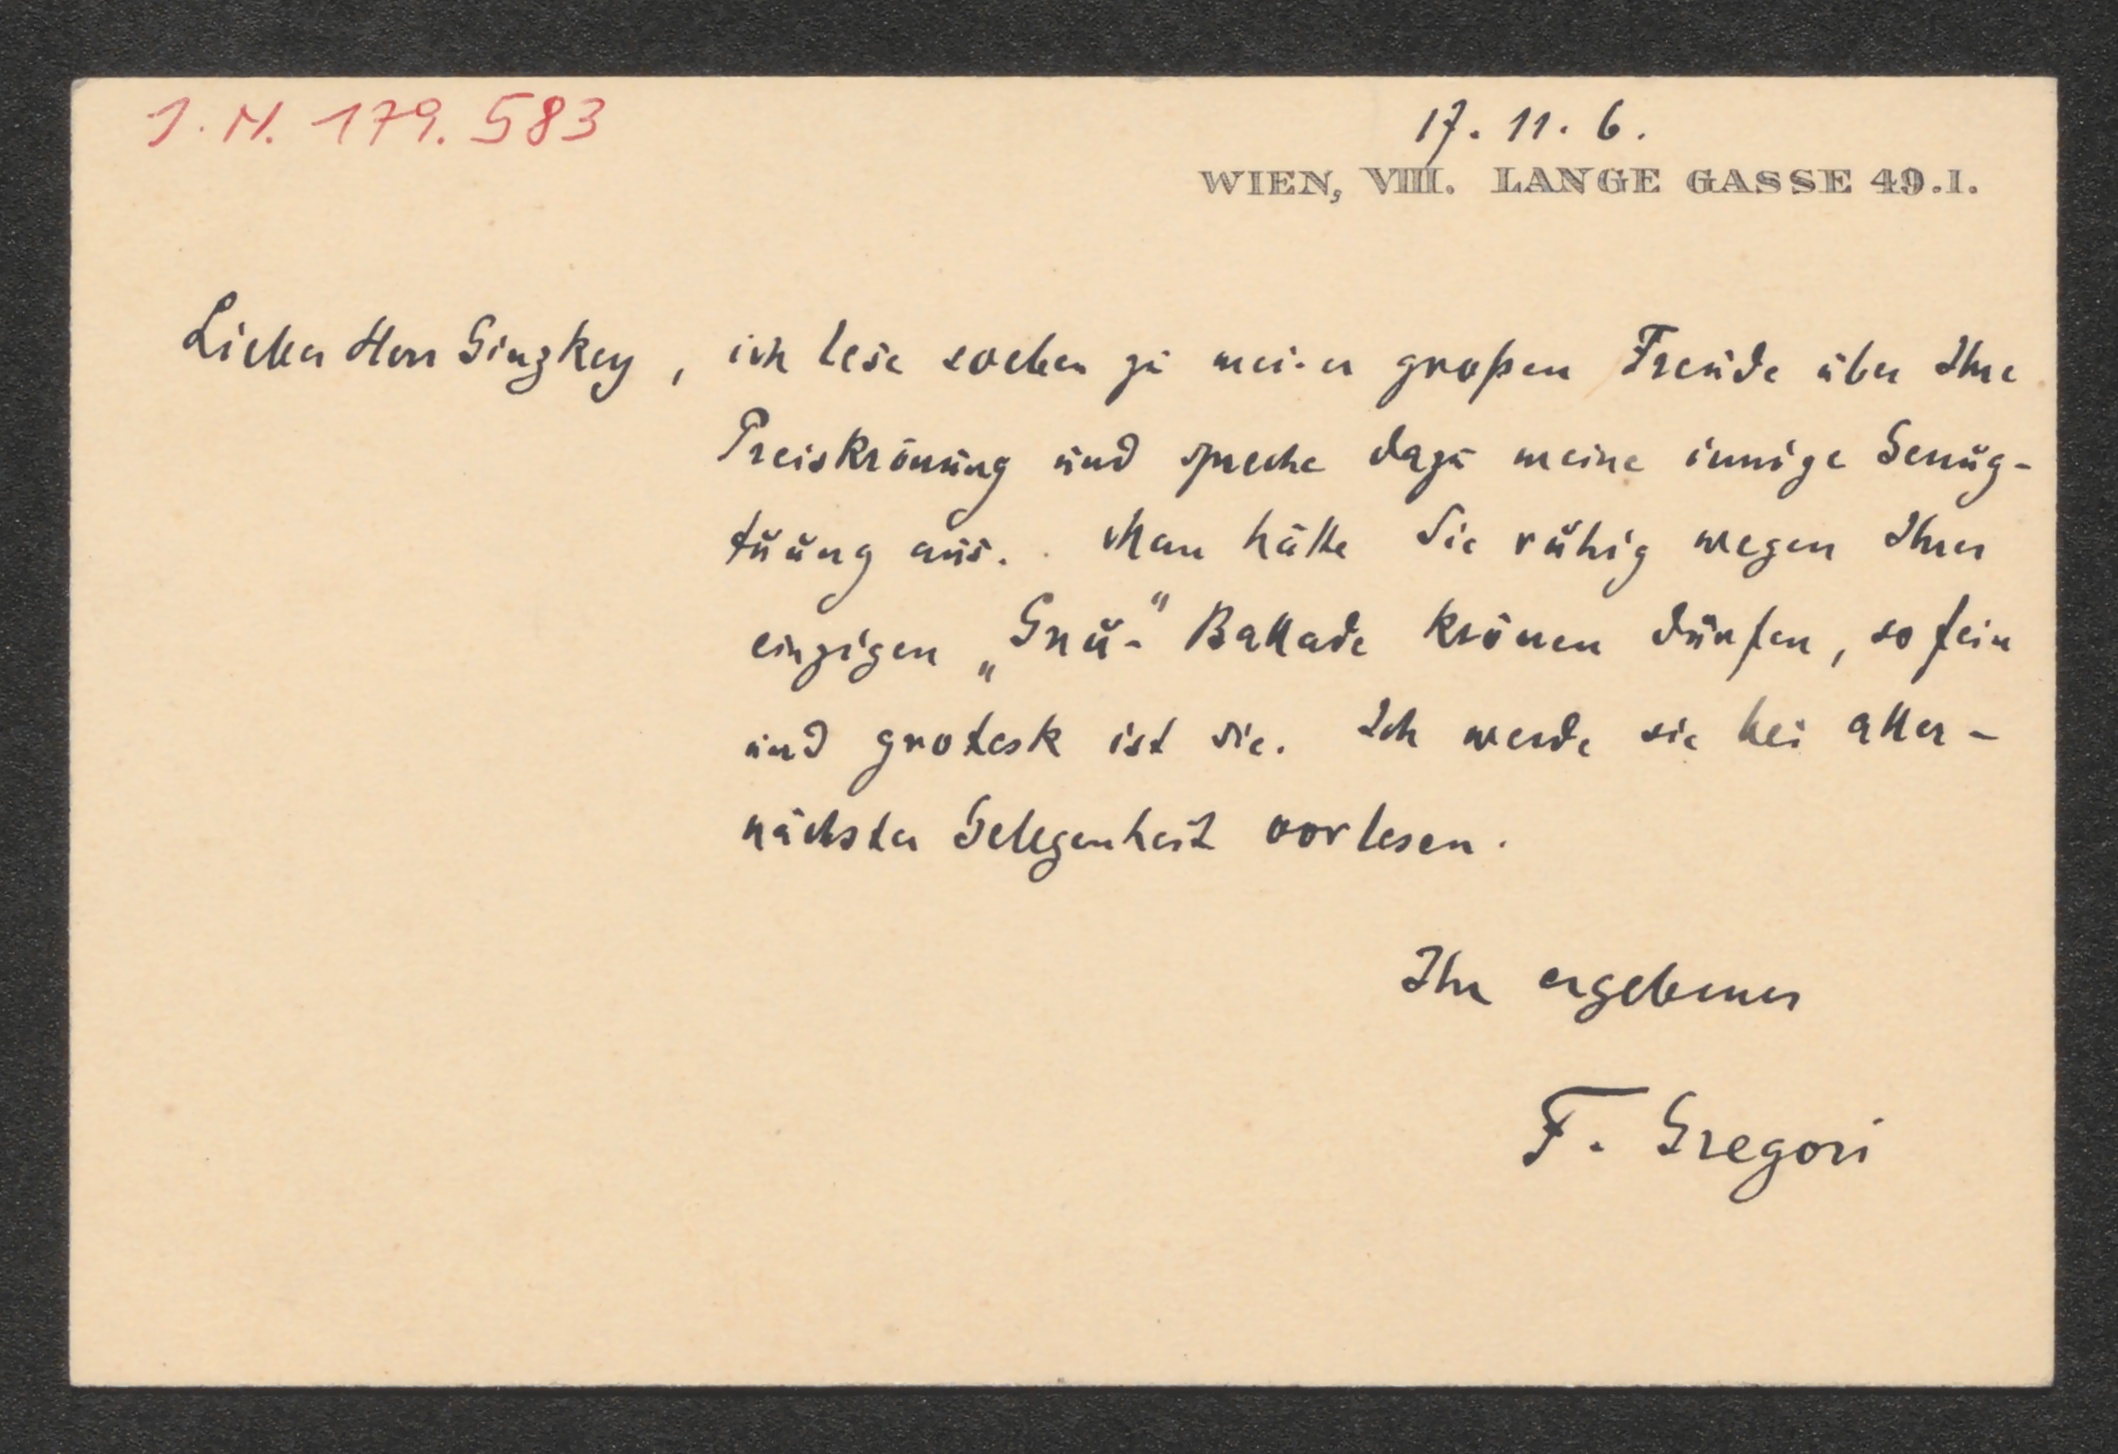 J. N. 179.583
17. 11. 6.
WIEN, VIII. LANGE GASSE 49.I.
Lieber Herr Ginzkey, ich lese soeben zu meiner großen Freude über Ihre
Preiskrönung und spreche dazu meine innige Genug-
tuung aus. Man hätte Sie ruhig wegen Ihrer
einzigen „Gnu-“ Ballade krönen dürfen, so fein
und grotesk ist sie. Ich werde sie bei aller-
nächster Gelegenheit vorlesen.
Ihr ergebener
F. Gregori